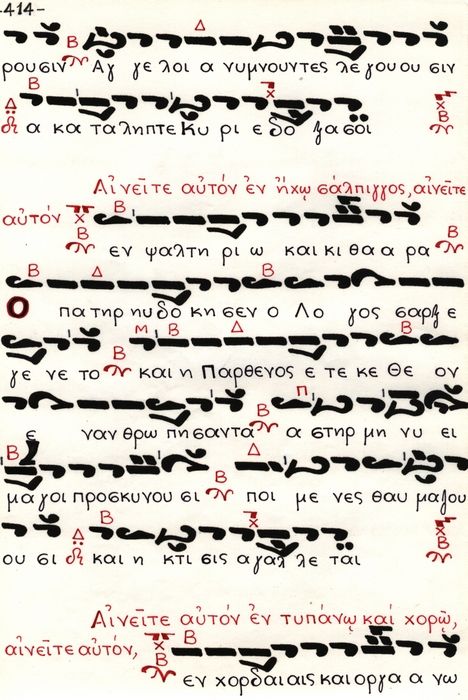 -414-
ρουσιν Αγ γε λοι α νυμνουντες λε γου ου σιν
α κα τα ληπτε Κυ ρι ε δο ξα σοι
Αἰνεῖτε αὐτόν ἐν ἤχῳ σάλπιγγος, αἰνεῖτε
αὐτόν
εν ψαλτη ρι ω και κι θα α ρα
Ο πα τηρ ηυ δο κη σεν ο Λο γος σαρξ ε
γε νε το και η Παρθενος ε τε κε Θε ον
ε ναν θρω πη σαντα α στηρ μη νυ ει
μα γοι προσκυνου σι ποι με νες θαυ μα ζου
ου σι και η κτι σις α γαλ λε ται
Αἰνεῖτε αὐτόν ἐν τυπάνῳ καί χορῷ,
αἰνεῖτε αὐτόν,
εν χορδαι αις και οργα α νω